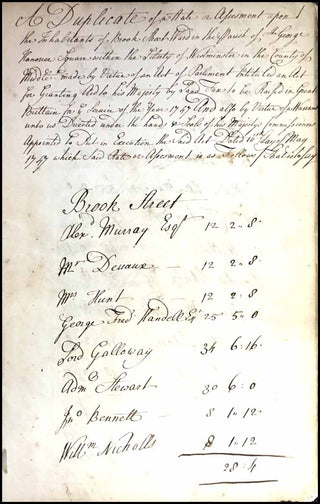 A Duplicate of a Rate or Assesment upon
the Inhabitants of Brook Street Ward in the Parish of St. George
Hanover Square within the Liberty of Westminster in the County of
Middx. Made by Virtue of an Act of Parliament Intitled an Act
for Granting Aid to his Majesty by a Land Tax to be Raised in Great
Brittain for ye Service of the Year And also by Virtue of a Warrant
unto us Directed under the hand & Seals of his Majestys Commissioners
Appointed to Put in Execution the said Act Dated ye day of May
which said Rate or Assesment is as Follows That is to Say
Brook Street
Alexd. Murray Esqr 12 2 " 8
Mr Devaux 12 2 " 8
Mrs Hunt 12 2 " 8
George Fredk Handell Esqr 25 5 " 0
Lord Galloway 34 6 " 16
Adml Stewart 30 6 " 0
Jno Bennett 8 1 " 12
Willm Nicholls 8 1 " 12
28 " 4